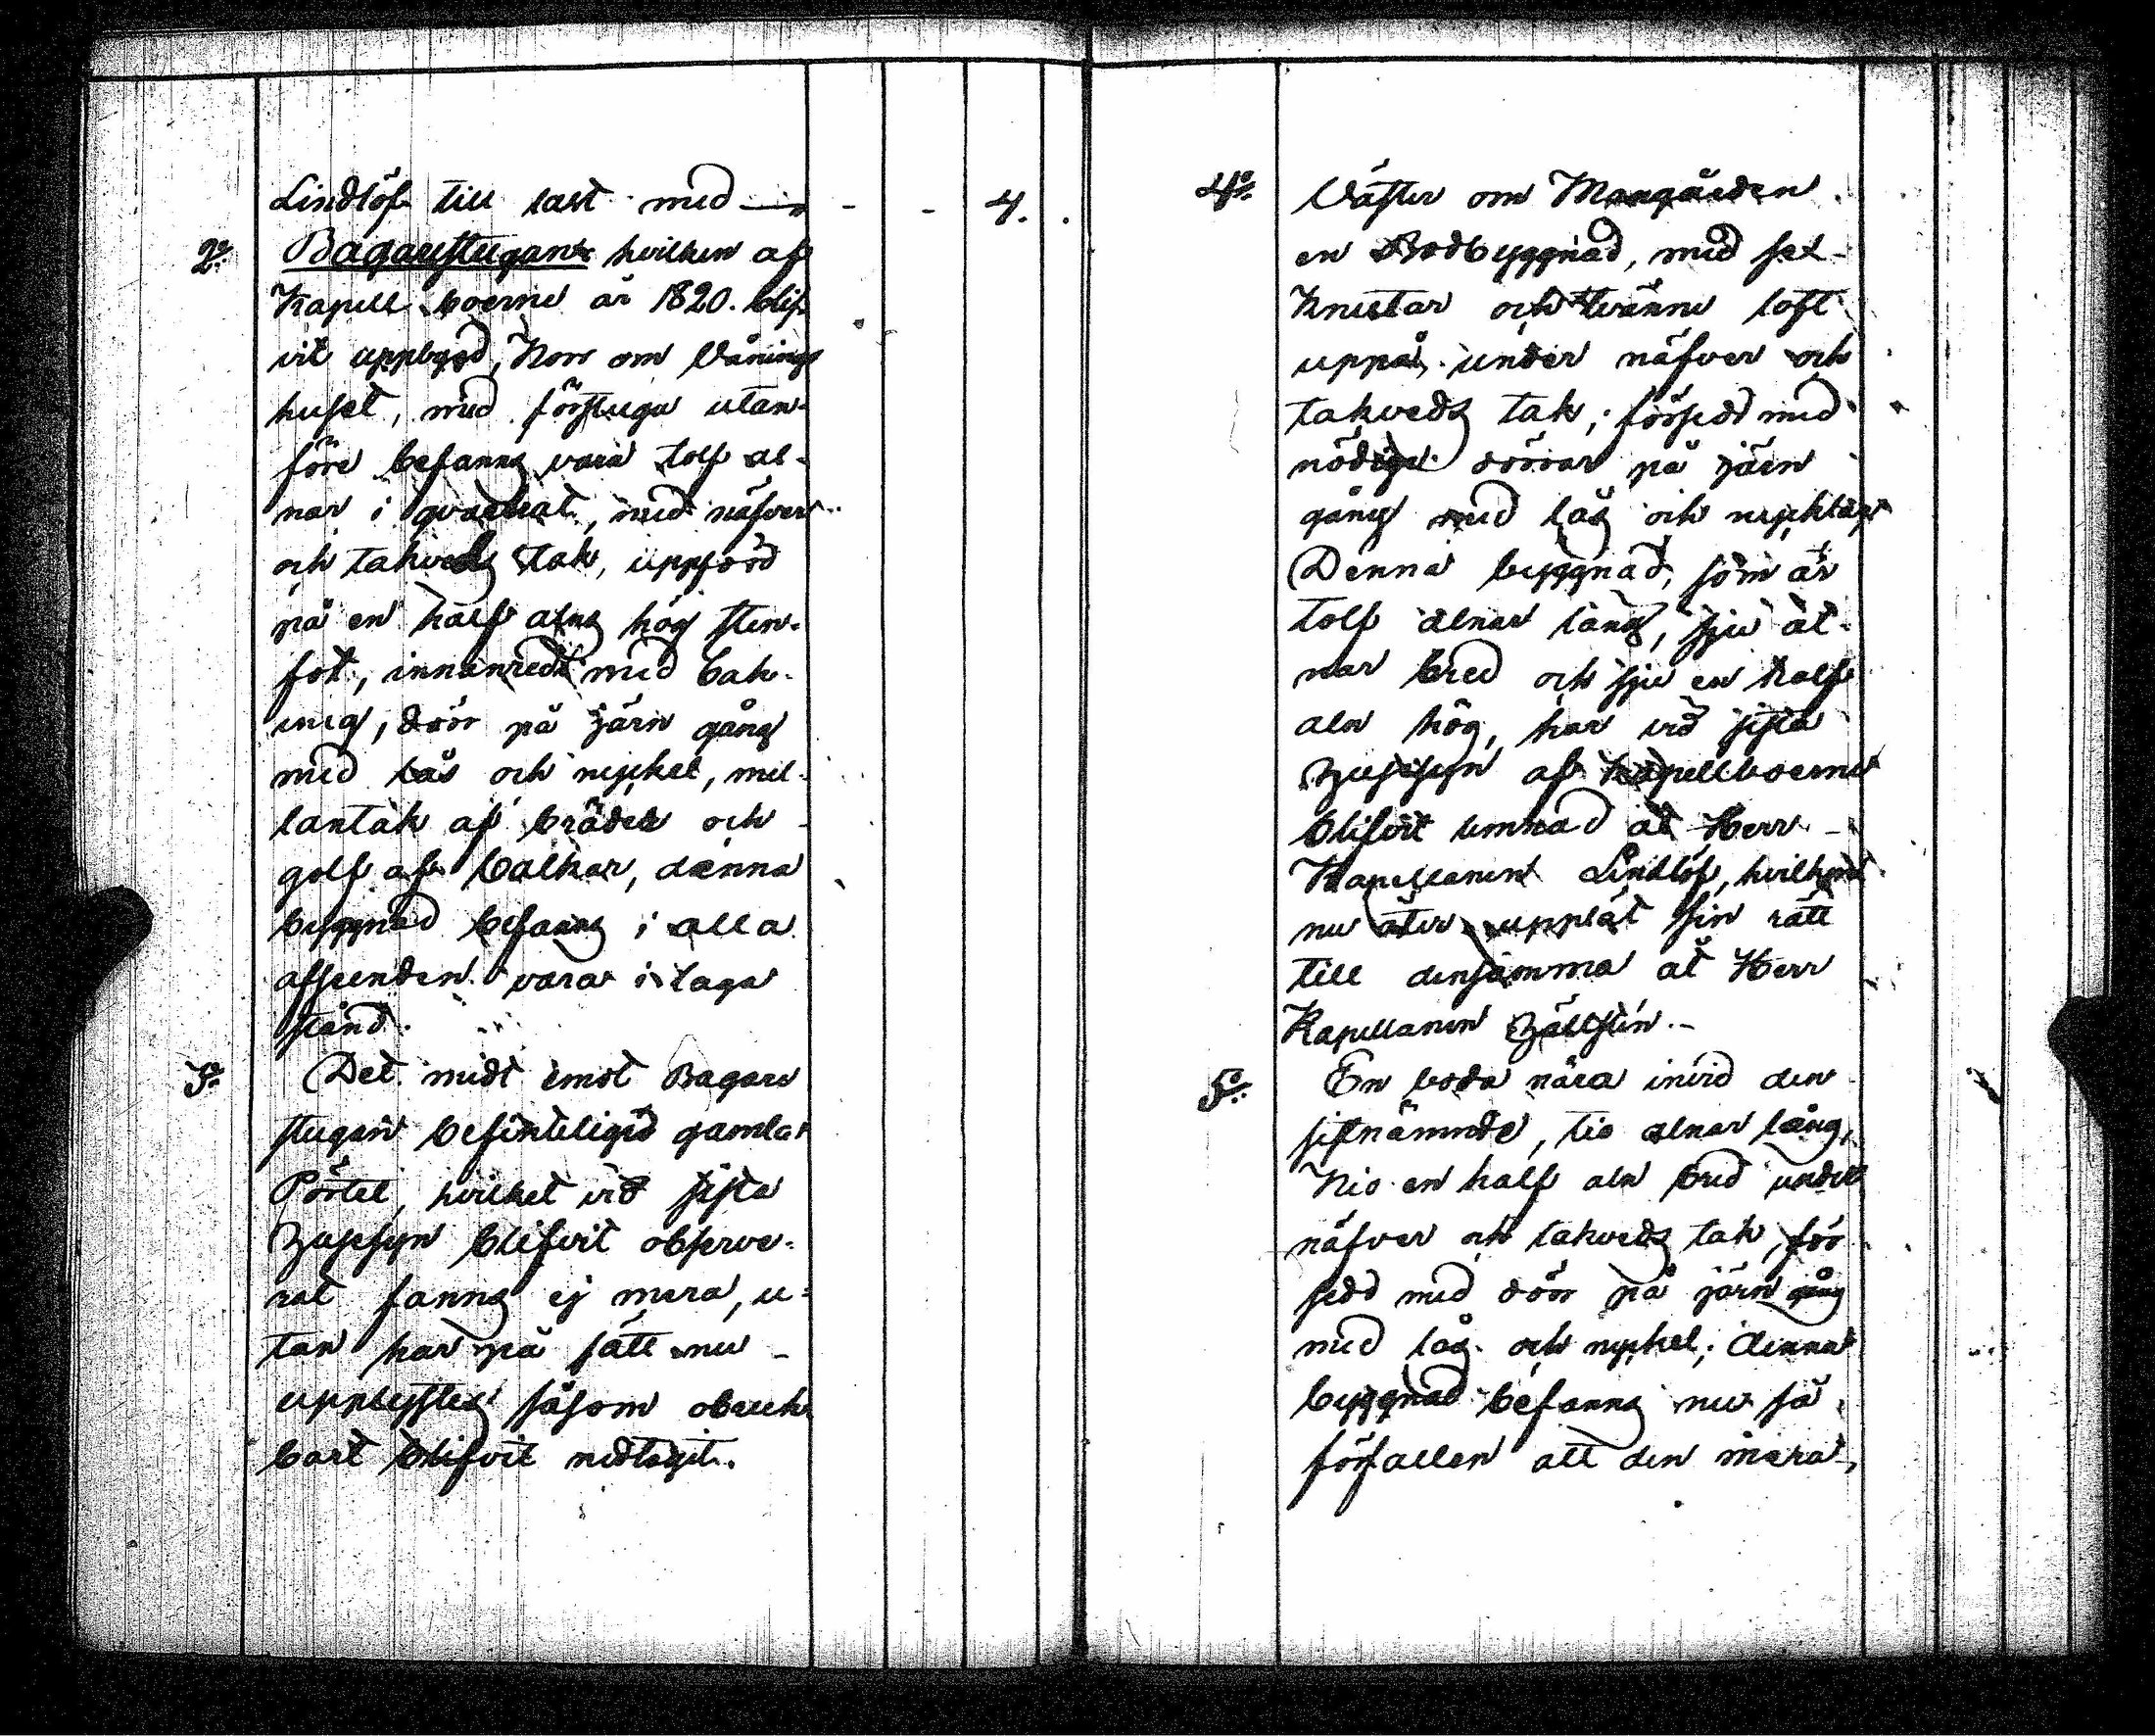 Lindlöf till last med — - - 4.
2º Bagarstugan hvilken af
Kapell boerne år 1820. blif
vit uppbygd, Norr om Vånings
huset, med förstuga utan-
före befanns vara tolf al-
nar i qvadrat, med näfver
och takveds tak, uppförd
på en half alns hög sten-
fot, innanredt med bak-
ung, dörr på järn gång
med lås och nyckel, mel-
lantak af bräder och
golf af balkar, denna
byggnad befanns i alla
afseenden vara i laga
stånd.
3º Det midt emot Bagare
stugan befinteliga gamla
Pörtet, hvilket vid sista
Husesyn blifvit observe-
rat fanns ej mera, u-
tan har på sätt nu
upplystes såsom obruk
bart blifvit nedtagit.
4º Väster om Mangården
en Bodbyggnad, med sex
Knutar och tvänne loft
uppå, under näfver och
takveds tak, försedd med
nödige dörrar på järn
gång med lås och nycklar
Denna byggnad, som är
tolf alnar lång, sju al-
nar bred och sju en half
aln hög, har vid sista
Husesyn af Kapellboerne
blifvit lemnad åt Herr
Kapellanen Lindlöf, hvilken
nu åter upplåt sin rätt
till densamma åt Herr
Kapellanen Hällsten.-
5º En boda nära invid den
sistnämnde, tio alnar lång,
Nio en half aln bred under
näfver och takveds tak, för
sedd med dörr på järn gång
med lås och nyckel; denna
byggnad befanns nu så
förfallen att den mera